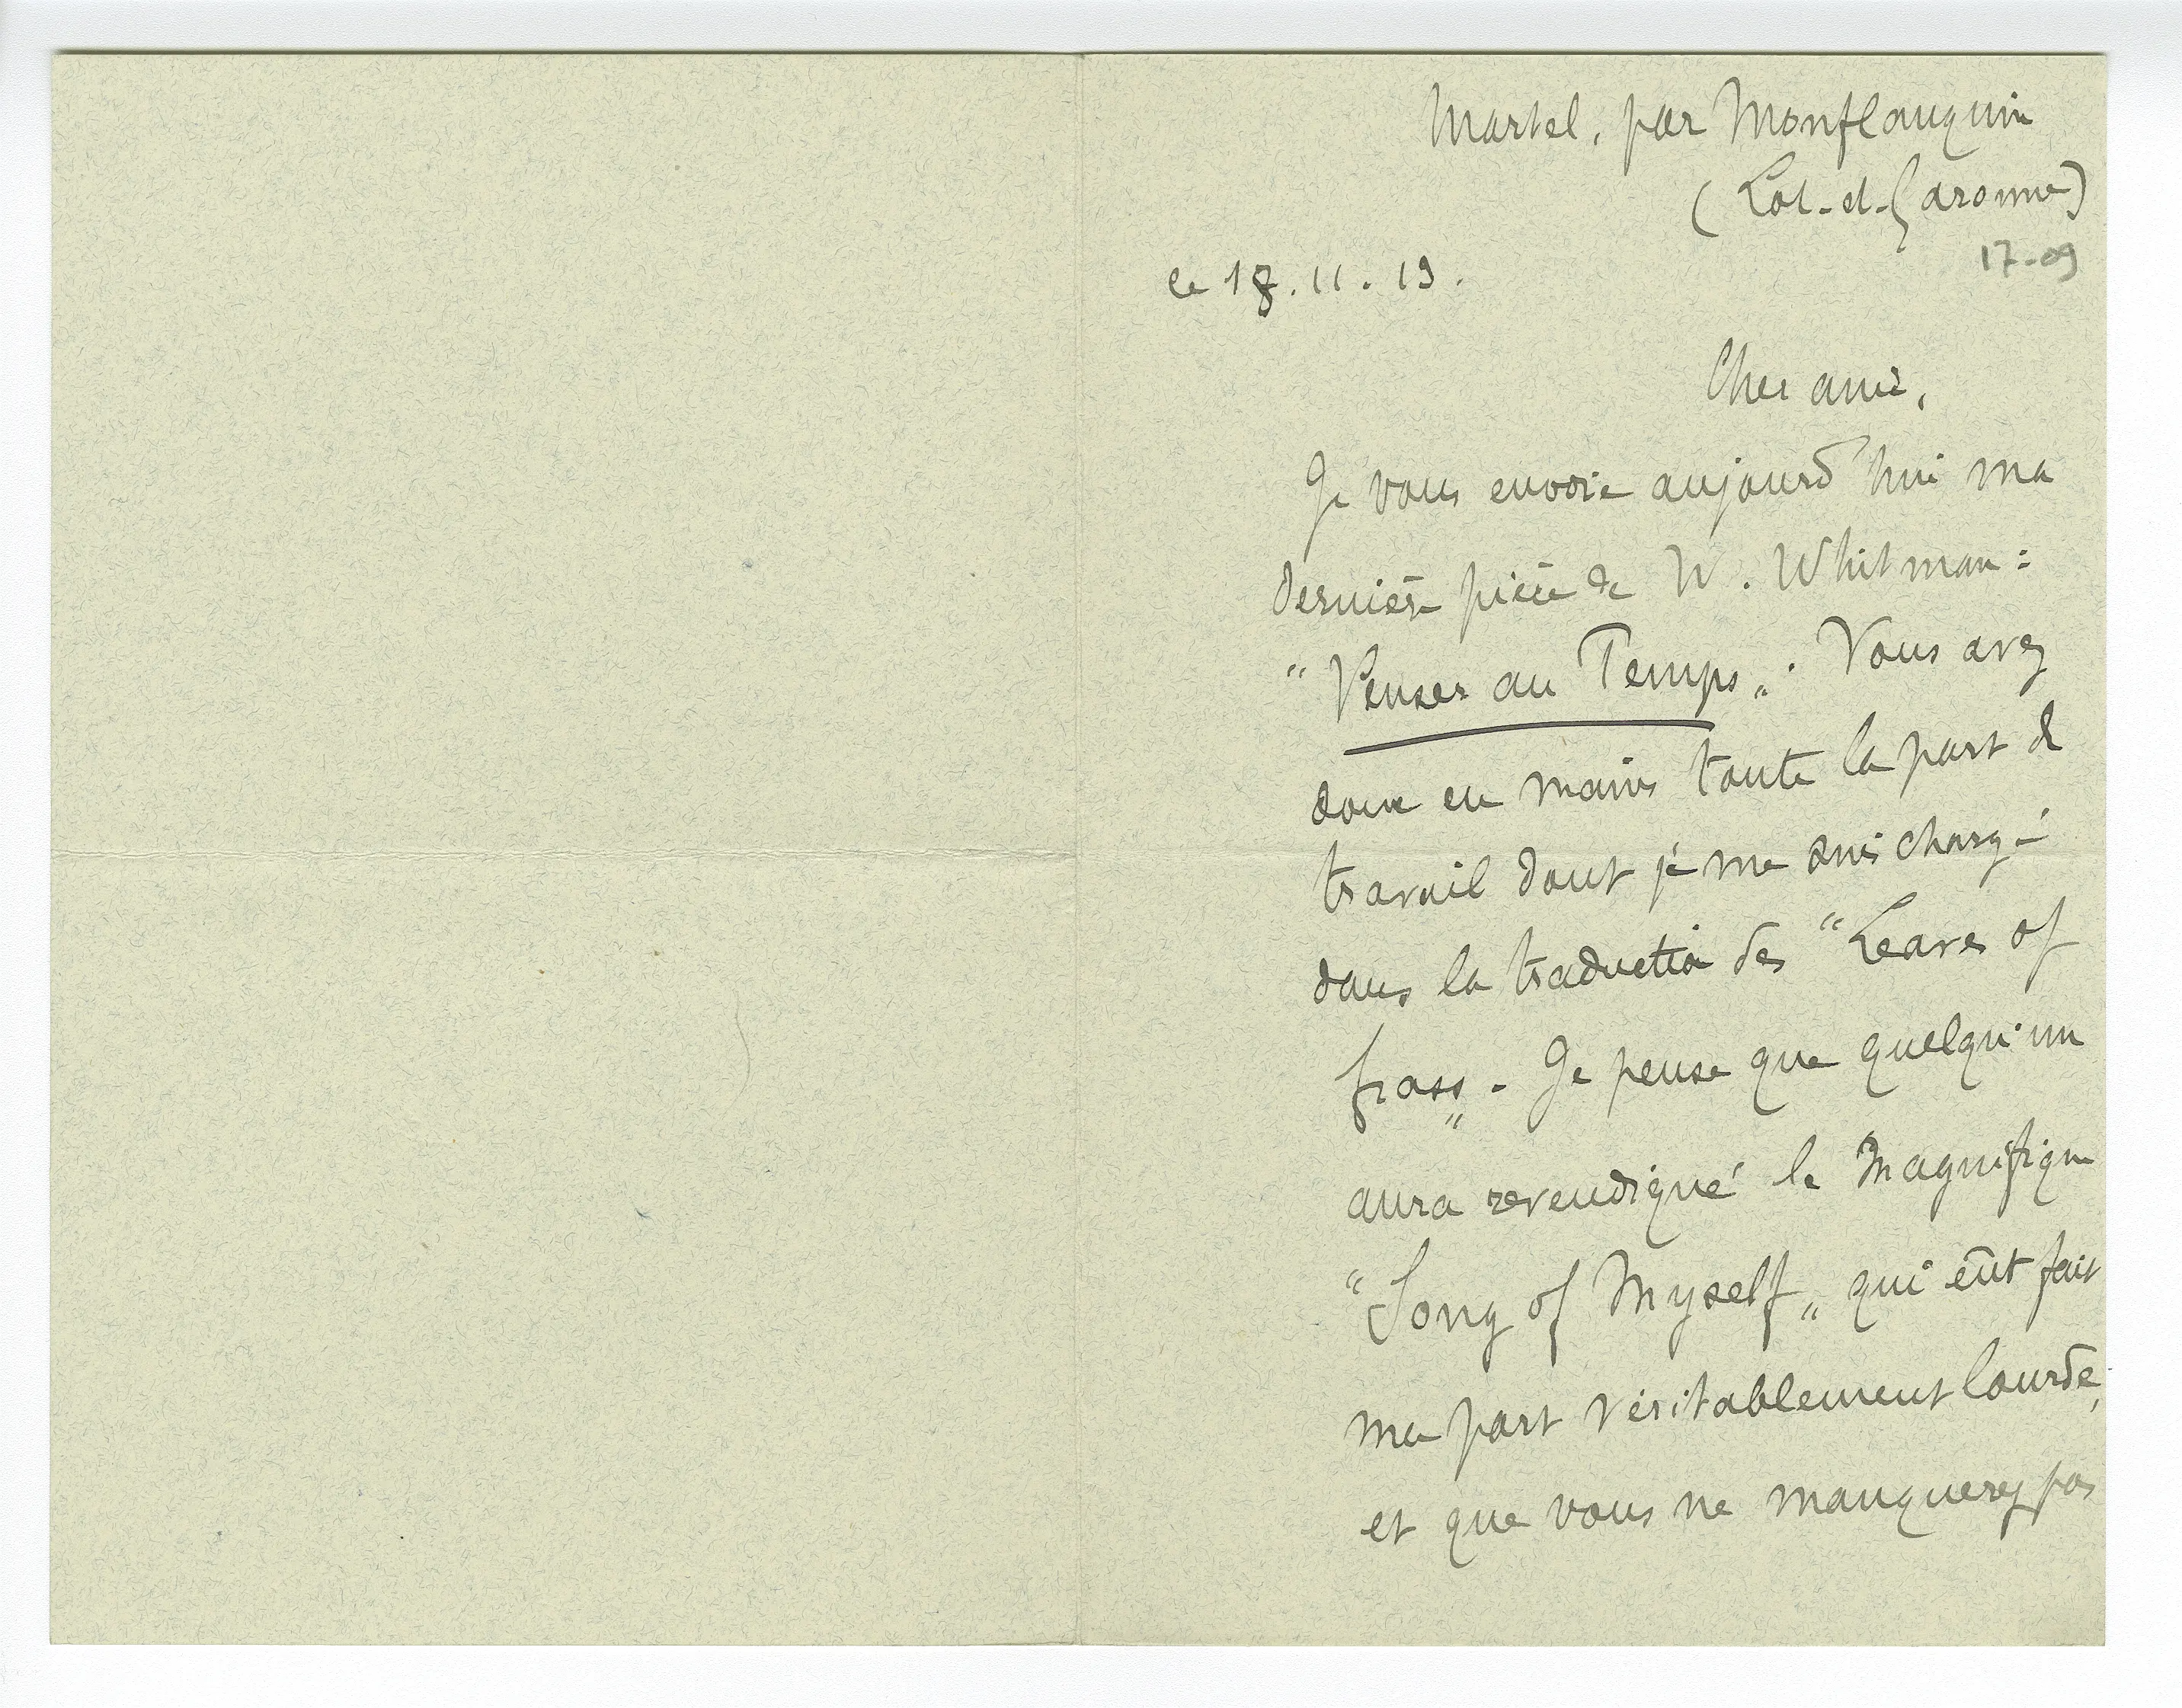 Martel, par Monflanquin
(Lot-et-Garonne)
17-09
le 18.11.19.
Cher ami,
Je vous envoie aujourd'hui ma
dernière pièce de W. Whitman :
"Penser au Temps„. Vous avez
donc en mains toute la part de
travail dont je me suis chargé
dans la traduction des "Leaves of
Grass„. Je pense que quelqu'un
aura revendiqué le magnifique
"Song of Myself„ qui eût fait
ma part véritablement lourde,
et que vous ne manquerez pas